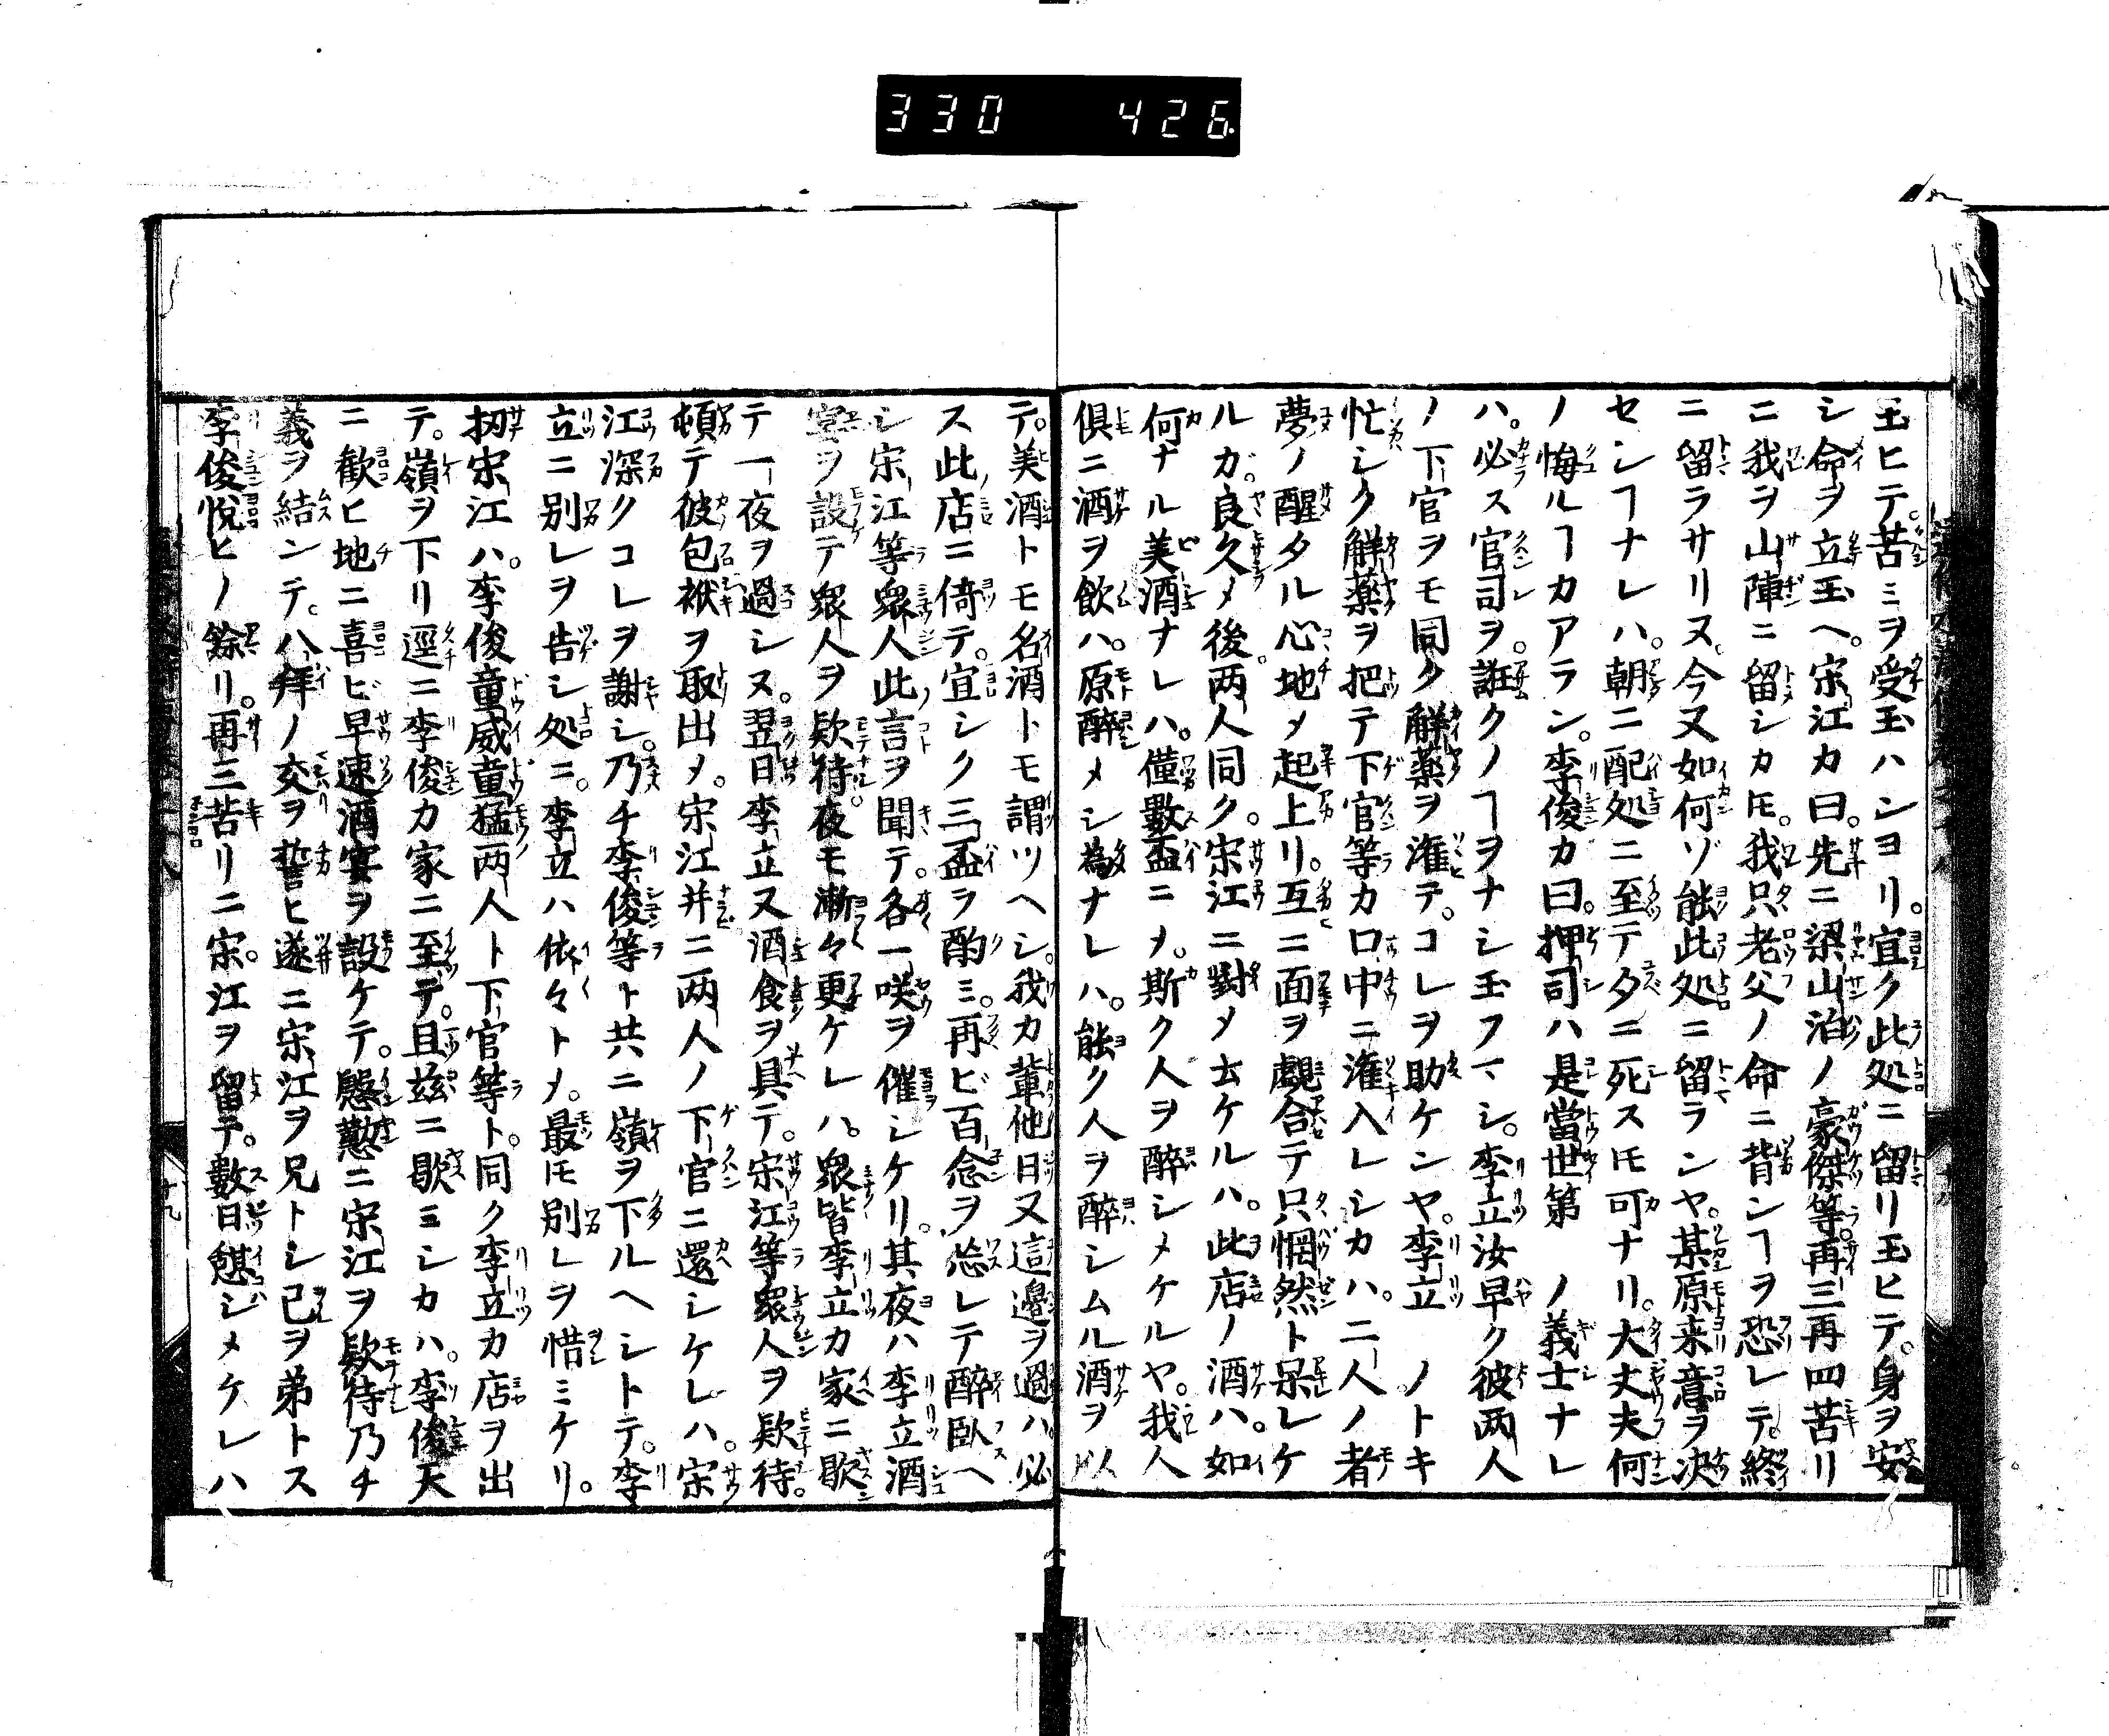 330 426
玉ヒテ。苦ミヲ受玉ハンヨリ。宜ク此処ニ留リ玉ヒテ。身ヲ安
シ命ヲ立玉ヘ。宋江カ曰。先ニ梁山泊ノ豪傑等。再三再四苦リ
ニ我ヲ山陣ニ留シカ𪜈。我只老父ノ命ニ背ンヿヲ恐レテ。終
ニ留ラサリヌ。今又如何ゾ能此処ニ留ランヤ。某原来意ヲ决
センヿナレハ。朝ニ配処ニ至テ夕ニ死ス𪜈可ナリ。大丈夫何
ノ悔ルヿカアラン。李俊カ曰。押司ハ是當世第 ノ義士ナレ
ハ。必ス官司ヲ。誑クノヿヲナシ玉フマシ。李立汝早ク彼两人
ノ下官ヲモ同ク解薬ヲ潅テ。コレヲ助ケンヤ。李立 ノトキ
忙シク解薬ヲ把テ下官等カ口中ニ潅入レシカハ。二人ノ者
夢ノ醒タル心地メ起上リ。互ニ面ヲ覷合テ只惘然ト呆レケ
ルカ。良久メ後。两人同ク。宋江ニ對メ云ケルハ。此店ノ酒ハ。如
何ナル美酒ナレハ。僅數盃ニメ。斯ク人ヲ醉シメケルヤ。我人
倶ニ酒ヲ飲ハ。原醉メシ為ナレハ。能ク人ヲ醉シムル酒ヲ以
テ。美酒トモ名酒トモ謂ツヘシ。我カ輩他日又這邉ヲ過ハ必
ス此店ニ倚テ。宜シク三盃ヲ酌ミ。再ビ百念ヲ忘レテ醉臥ヘ
シ宋江等衆人此言ヲ聞テ。各一咲ヲ催シケリ。其夜ハ李立酒
宴ヲ設テ衆人ヲ欵待。夜モ漸々更ケレハ。衆皆李立カ家ニ歇
テ一夜ヲ過シヌ。翌日李立又酒食ヲ具テ。宋江等衆人ヲ欵待。
頓テ彼包袱ヲ取出メ。宋江并ニ两人ノ下官ニ還シケレハ。宋
江深クコレヲ謝シ。乃チ李俊等ト共ニ嶺ヲ下ルヘシトテ。李
立ニ別レヲ告シ処ニ。李立ハ依々トメ。最𪜈別レヲ惜ミケリ。
扨宋江ハ。李俊童威童猛两人ト下官等ト。同ク李立カ店ヲ出
テ。嶺ヲ下リ逕ニ李俊カ家ニ至テ。且玆ニ歇ミシカハ。李俊天
ニ歓ヒ地ニ喜ビ早速酒宴ヲ設ケテ。慇懃ニ宋江ヲ欵待乃チ
義ヲ結ンテ。八拜ノ交ヲ誓ヒ遂ニ宋江ヲ兄トシ己ヲ弟トス
李俊悦ヒノ餘リ。再三苦リニ宋江ヲ留テ。數日憇シメケレハ